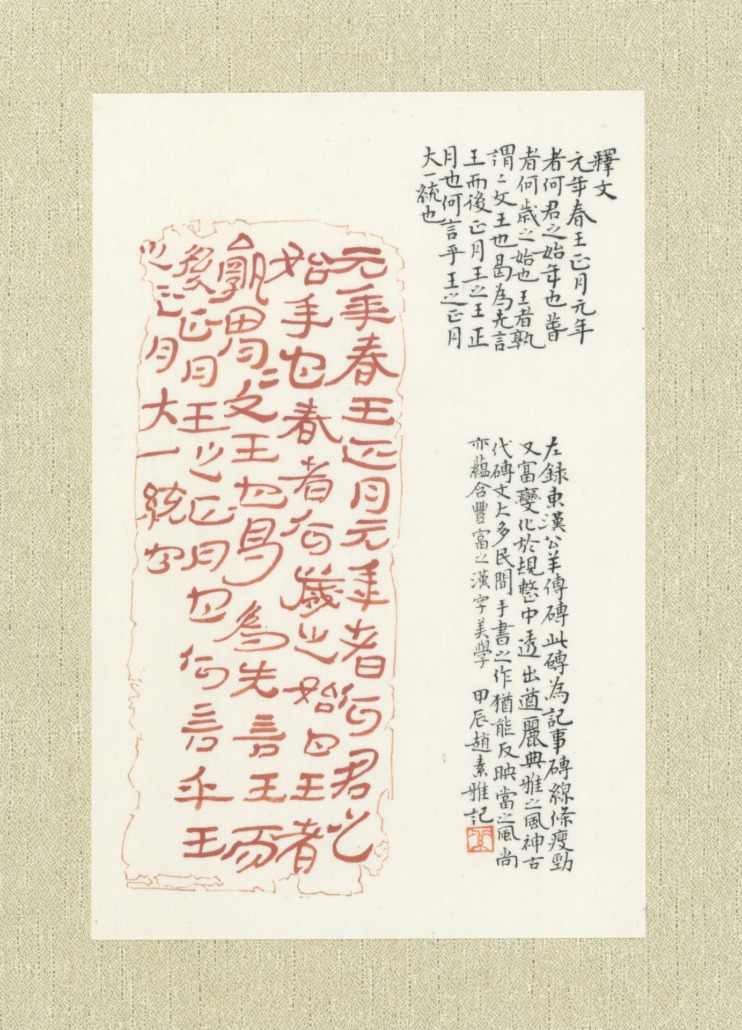 釋文
元年春王正月元年
者何君之始年也萅
者何歲之始也王者孰
謂〻文王也曷為先言
王而後正月王之王正
月也何言乎王之正月
大一統也
左録東漢公羊傳磚此磚為記事磚線條瘦勁
又富變化於規整中透出遒麗典雅之風神古
代磚文大多民間手書之作猶能反映當之風尚
亦蘊含豐富之漢字美學 甲辰趙素雅記
元年春王正月元年者何君之
始年也春者何歲之始也王者
孰胃〻文王也曷為先言王而
後正月王之正月也何言乎王
之正月大一統也